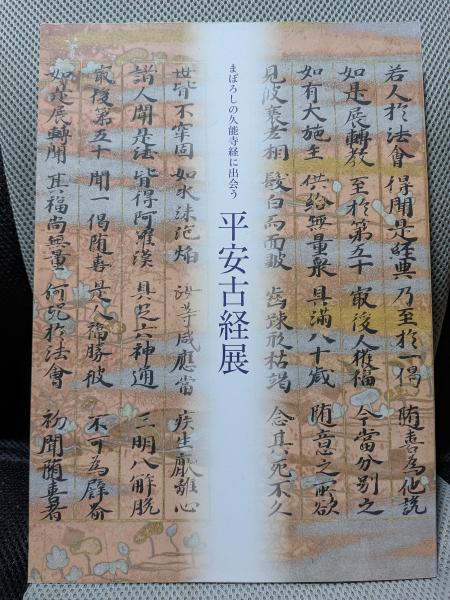 若人於法會 得聞是經典 乃至於一偈 随喜為他説
如是展轉教 至於第五十 最後人獲福 今當分別之
如有大施主 供給無量衆 具滿八十歳 随意之所欲
見彼衰老相 髮白而面皺 齒踈形枯竭 念其死不久
まぼろしの久能寺経に出会う
平安古経展
世皆不牢固 如水沫泡焔 汝等咸應當 疾生厭離心
諸人聞是法 皆得阿羅漢 具足六神通 三明八解脱
最後第五十 聞一偈随喜 是人福勝彼 不可為譬喩
如是展轉聞 其福尚無量 何況於法會 初聞随喜者